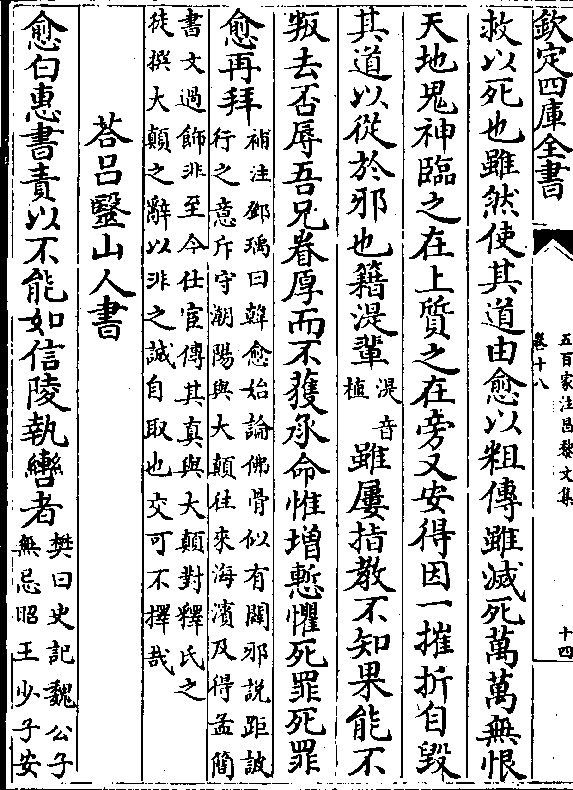 欽定四庫全書
五百家注昌黎文集
卷十八
十四
救以死也雖然使其道由愈以粗傳雖滅死萬萬無恨
天地鬼神臨之在上質之在旁又安得因一摧折自毀
其道以從於邪也籍湜輩湜音植雖屢指教不知果能不
叛去否辱吾兄眷厚而不獲承命惟增慙懼死罪死罪
愈再拜補注鄧瑀曰韓愈始論佛骨似有闢邪説距詖行之意斥守潮陽與大顛往來海濵及得孟簡
書文過飾非至今仕宦傳其真與大顛對釋氏之徒撰大顛之辭以非之誠自取也交可不擇哉
荅吕毉山人書
愈白惠書責以不能如信陵執轡者樊曰史記魏公子無忌昭王少子安